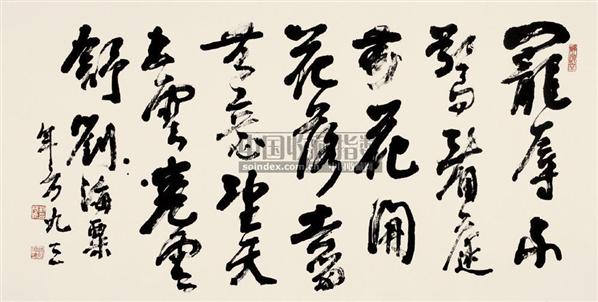 寵辱不
驚看庭
前花開
花落去留
無意望天
上雲卷雲
舒 劉海粟
年方九三
中国收藏指数
soindex.com.cn